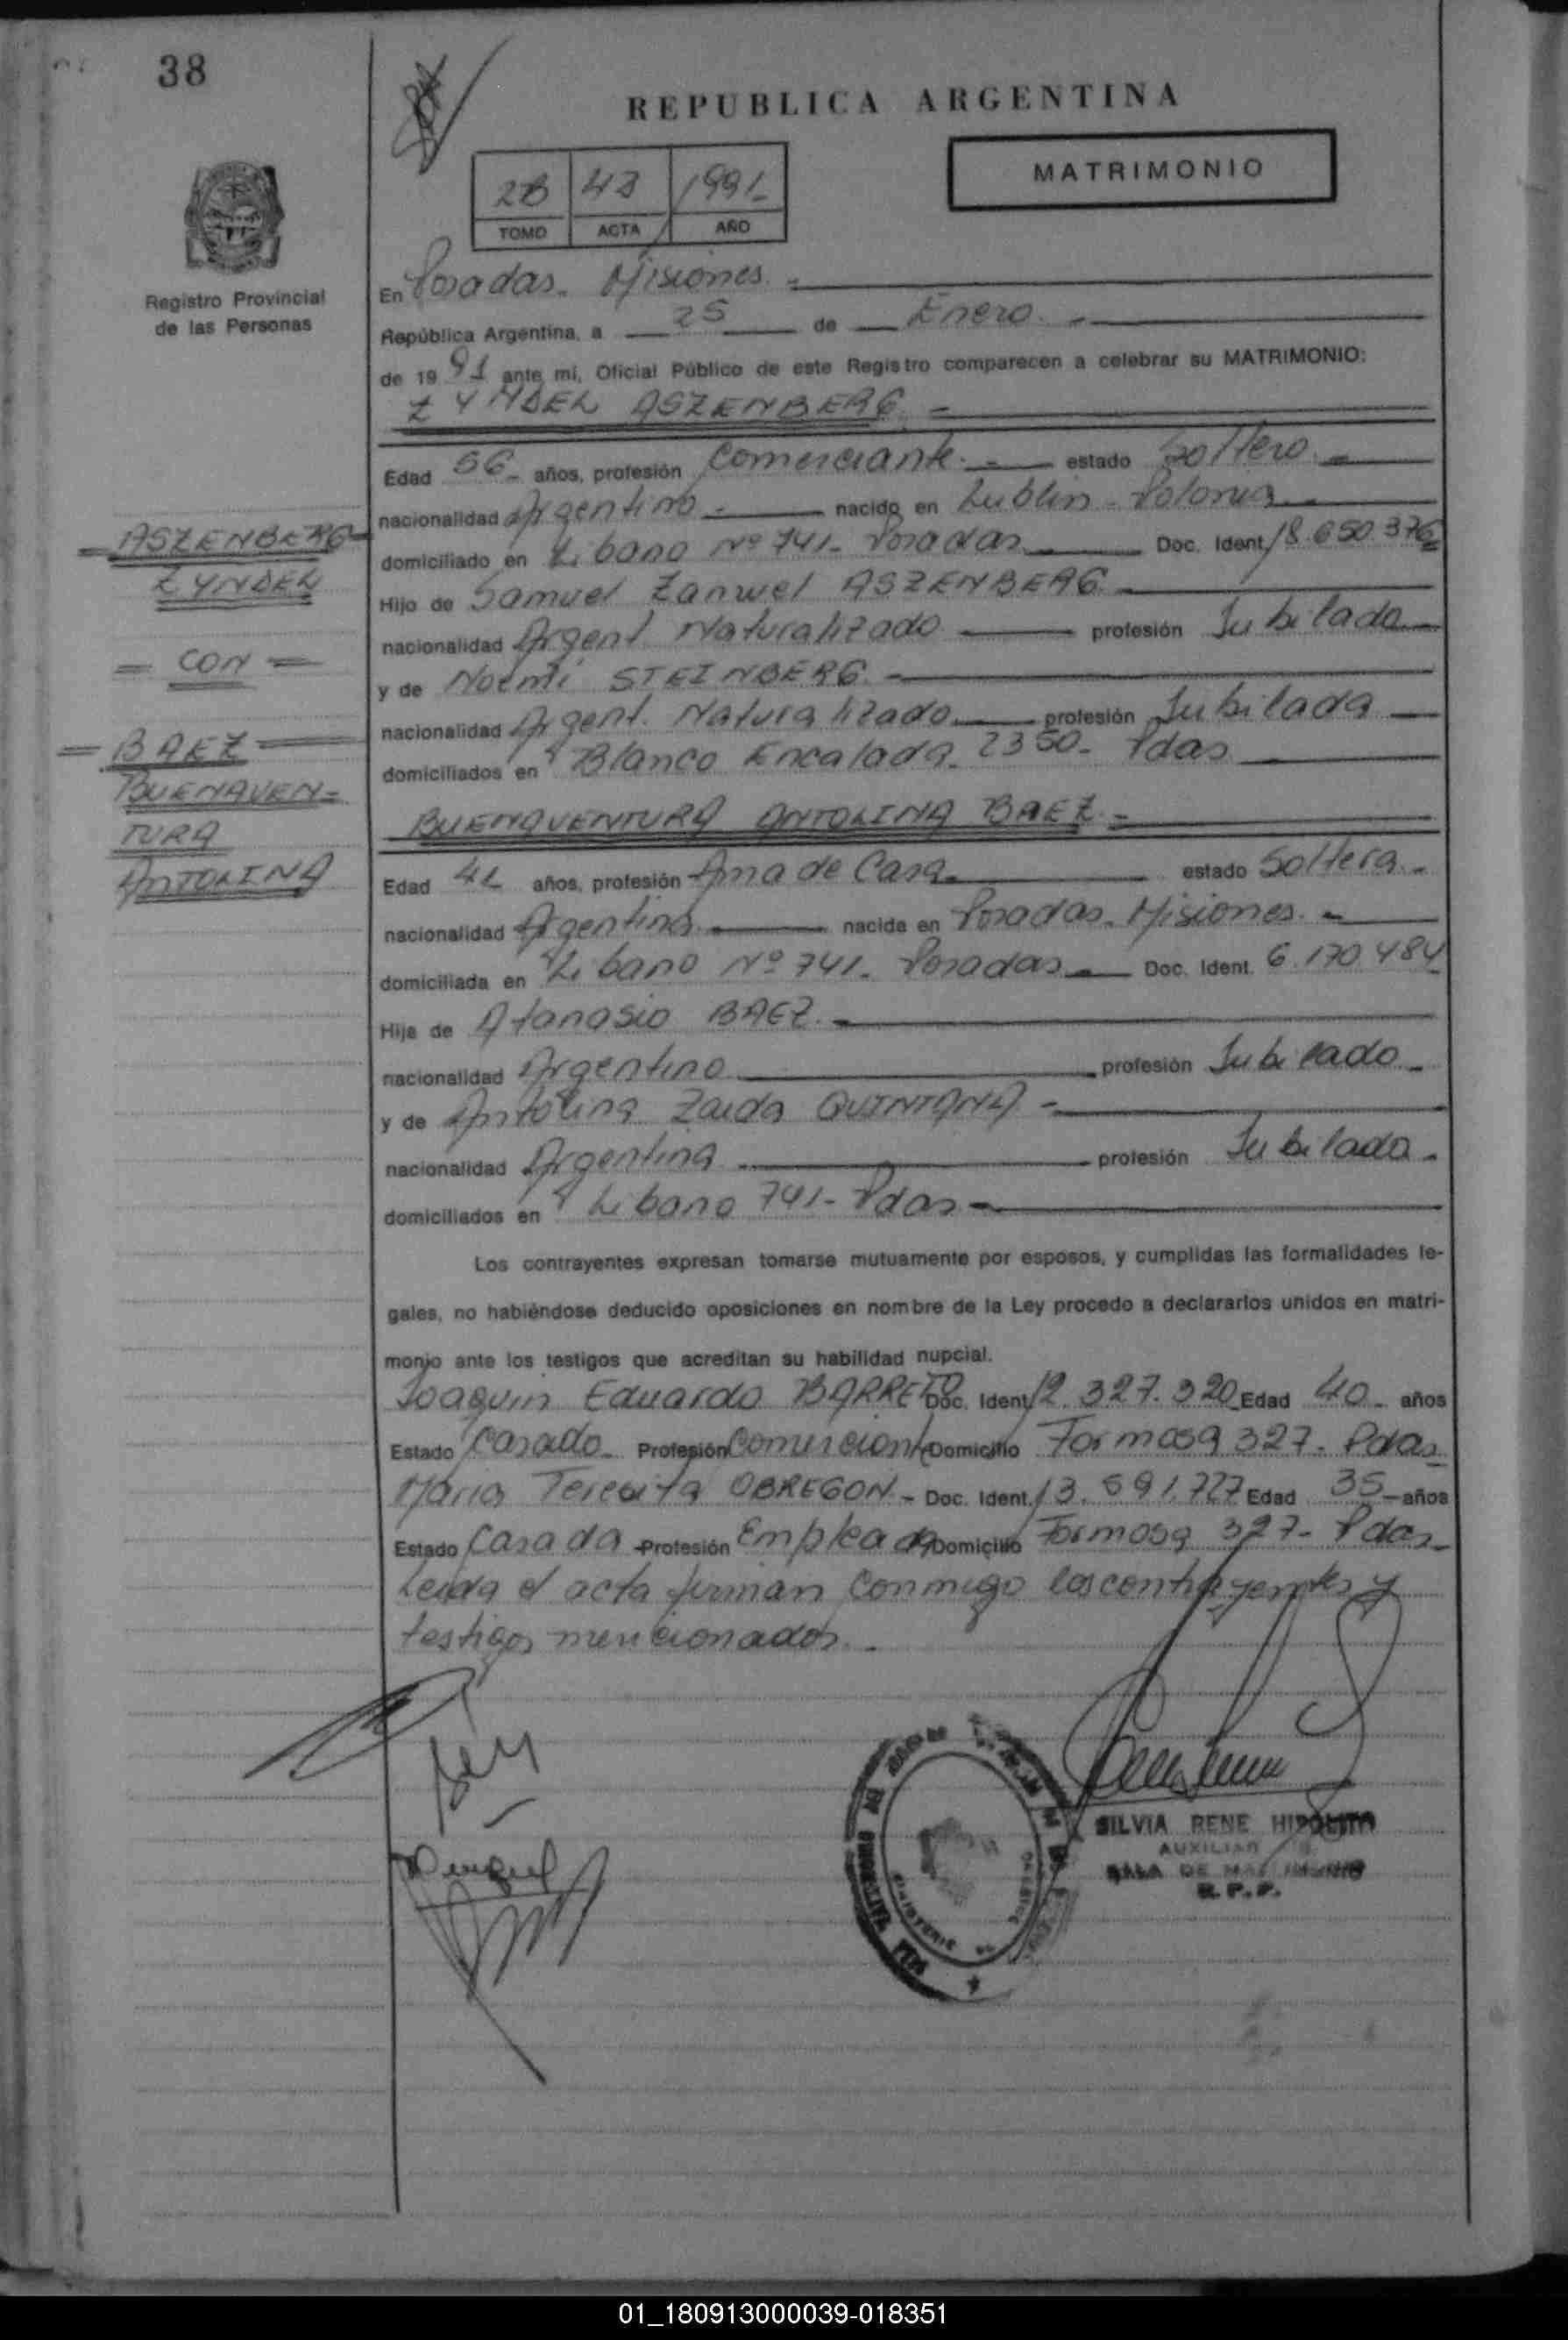 38
REPUBLICA ARGENTINA
MATRIMONIO
2B 43 1991
TOMO ACTA AÑO
Registro Provincial
de las Personas
En Posadas - Misiones
República Argentina, a 25 de Enero
de 1991 ante mí, Oficial Público de este Registro comparecen a celebrar su MATRIMONIO:
ZYNDEL ASZENBERG
Edad 56 años, profesión Comerciante estado Soltero
nacionalidad Argentino nacido en Lublin - Polonia
domiciliado en Libano Nº 741 - Posadas Doc. Ident. 18.650.376
Hijo de Samuel Zanwel ASZENBERG
nacionalidad Argent. Naturalizado profesión Jubilado
y de Noemí STEINBERG
nacionalidad Argent. Naturalizado profesión Jubilada
domiciliados en Blanco Encalada 2350 - Pdas
ASZENBERG
ZYNDEL
= CON =
= BAEZ =
BUENAVEN=
TURA
ANTOLINA
BUENAVENTURA ANTOLINA BAEZ
Edad 41 años, profesión Ama de Casa estado Soltera
nacionalidad Argentina nacida en Posadas - Misiones
domiciliada en Libano Nº 741 - Posadas Doc. Ident. 6.170.484
Hija de Atanasio BAEZ
nacionalidad Argentino profesión Jubilado
y de Antolina Zaida QUINTANA
nacionalidad Argentina profesión Jubilada
domiciliados en Libano 741 - Pdas
Los contrayentes expresan tomarse mutuamente por esposos, y cumplidas las formalidades le-
gales, no habiéndose deducido oposiciones en nombre de la Ley procedo a declararlos unidos en matri-
monio ante los testigos que acreditan su habilidad nupcial.
Joaquin Eduardo BARRETO Doc. Ident. 12.327.320 Edad 40 años
Estado Casado Profesión Comerciante Domicilio Formosa 327 - Pdas
Maria Teresita OBREGON - Doc. Ident. 13.591.727 Edad 35 años
Estado Casada Profesión Empleada Domicilio Formosa 327 - Pdas
Leida el acta firman conmigo los contrayentes y
testigos mencionados.
SILVIA RENE HIPOLITO
AUXILIAR
SALA DE MATRIMONIO
R. P. P.
01_180913000039-018351